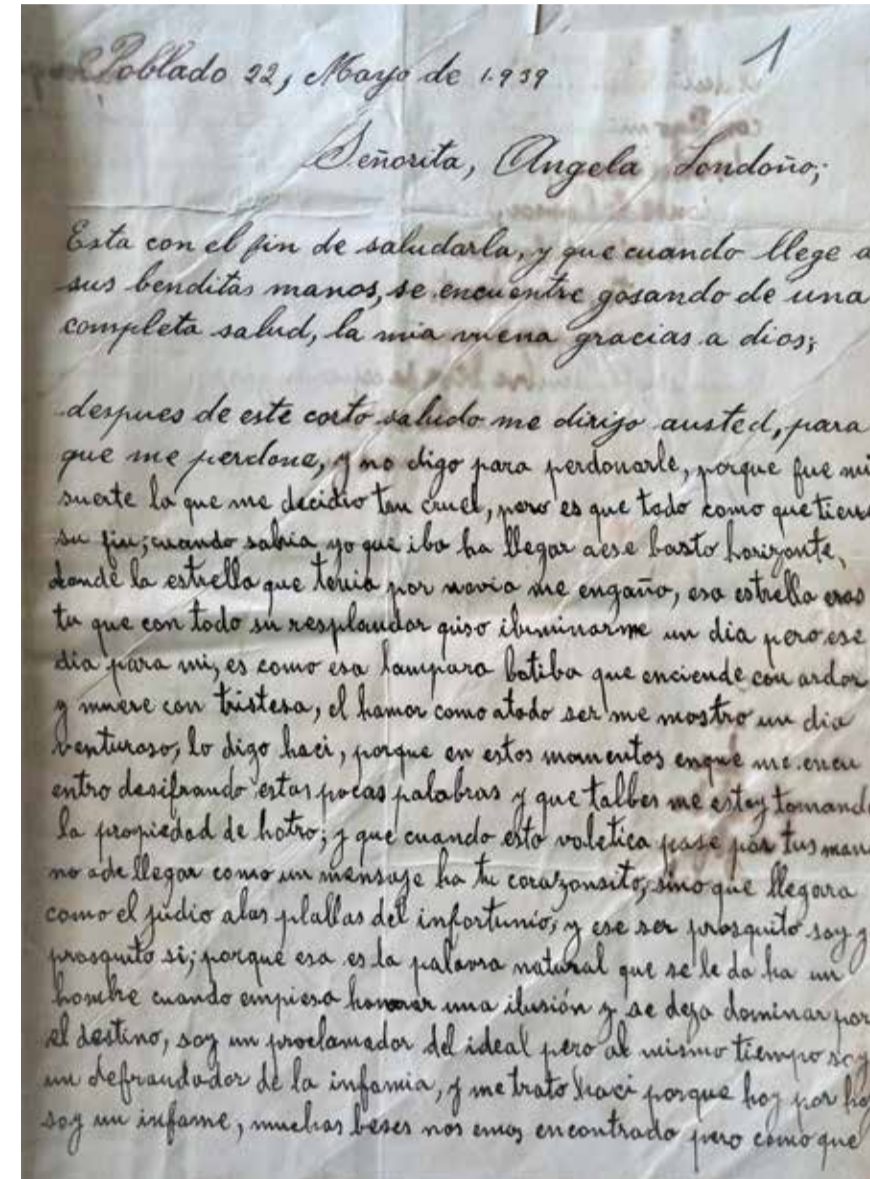 1
Poblado 22, Mayo de 1.939
Señorita, Angela Londoño;
Esta con el fin de saludarla, y que cuando llege a
sus benditas manos, se encuentre gosando de una
completa salud, la mia vuena gracias a dios;
despues de este corto saludo me dirijo austed, para
que me perdone, y no digo para perdonarle, porque fue mi
suerte la que me decidio tan cruel, pero es que todo como que tiene
su fin; cuando sabia yo que iba ha llegar aese basto horizonte,
donde la estrella que tenia por novia me engaño, esa estrella eras
tu que con todo su resplandor quiso iluminarme un dia pero ese
dia para mi, es como esa lampara botiba que enciende con ardor
y muere con tristesa, el hamor como atodo ser me mostro un dia
venturoso, lo digo haci, porque en estos momentos enque me encu
entro desifrando estas pocas palabras y que talbes me estoy tomando
la propiedad de hotro; y que cuando esta voletica pase por tus man
no ade llegar como un mensaje ha tu corazonsito, sino que llegara
como el judio alas plallas del infortunio, y ese ser prosquito soy y
prosquito si; porque esa es la palavra natural que se le da ha un
hombre cuando empiesa una ilusión y se deja dominar por
el destino, soy un proclamador del ideal pero al mismo tiempo soy
un defraudador de la infamia, y me trato haci porque hoy por hoy
soy un infame, muchas beses nos emos encontrado pero como que